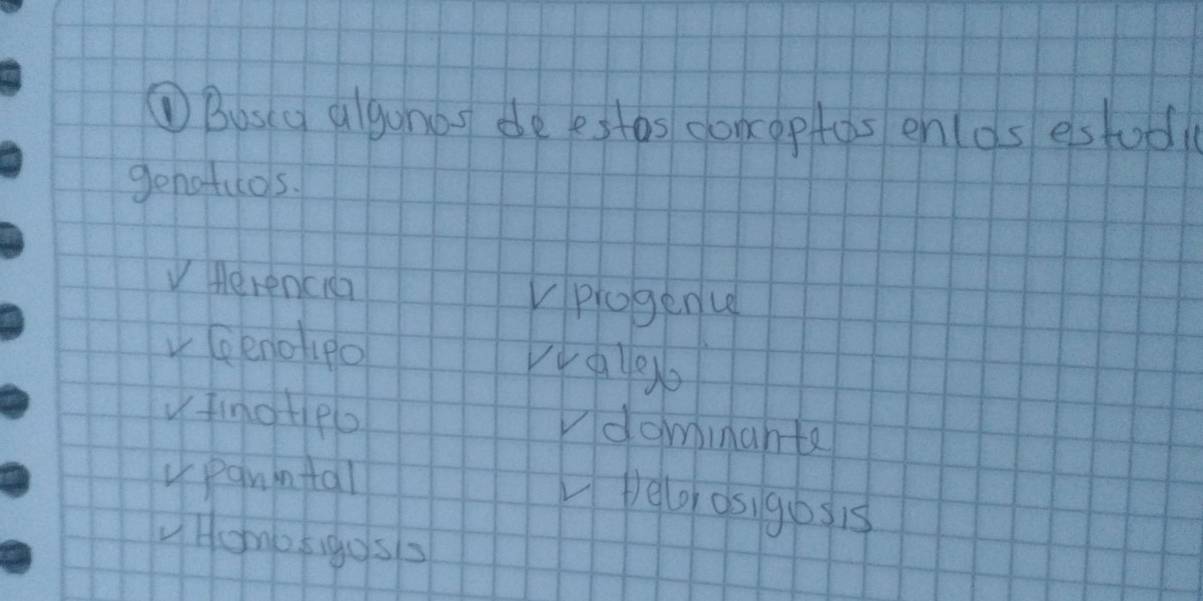 ① Busca algunos de estos conceptos en los estudi
geneticos.
✓ Herencia
✓ progenie
✓ Genotipo
✓ alelo
✓ finotipo
✓ dominante
✓ parental
✓ Heterosigosis
✓ Homosigosis